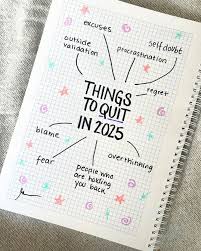 excuses
self doubt
outside
validation
procrastination
regret
THINGS
TO QUIT
IN 2025
blame
overthinking
fear
people who
are holding
you back